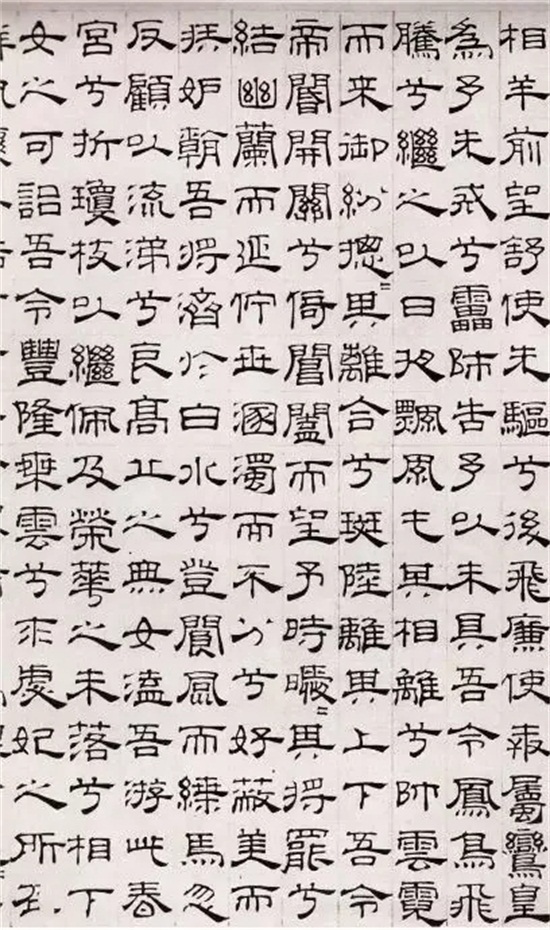 相羊前望舒使先驅兮後飛廉使奔屬鸞皇
為予先戒兮靁師告予以未具吾令鳳鳥飛
騰兮繼之以日夜飄風屯其相離兮帥雲霓
而来御紛揔=其離合兮斑陸離其上下吾令
帝閽開關兮倚閶闔而望予時曖=其將罷兮
結幽蘭而延佇世溷濁而不分兮好蔽美而
嫉妒朝吾將濟於白水兮登閬風而緤馬忽
反顧以流涕兮哀高丘之無女溘吾游此春
宮兮折瓊枝以繼佩及榮華之未落兮相下
女之可詒吾令豐隆乘雲兮求虙妃之所在